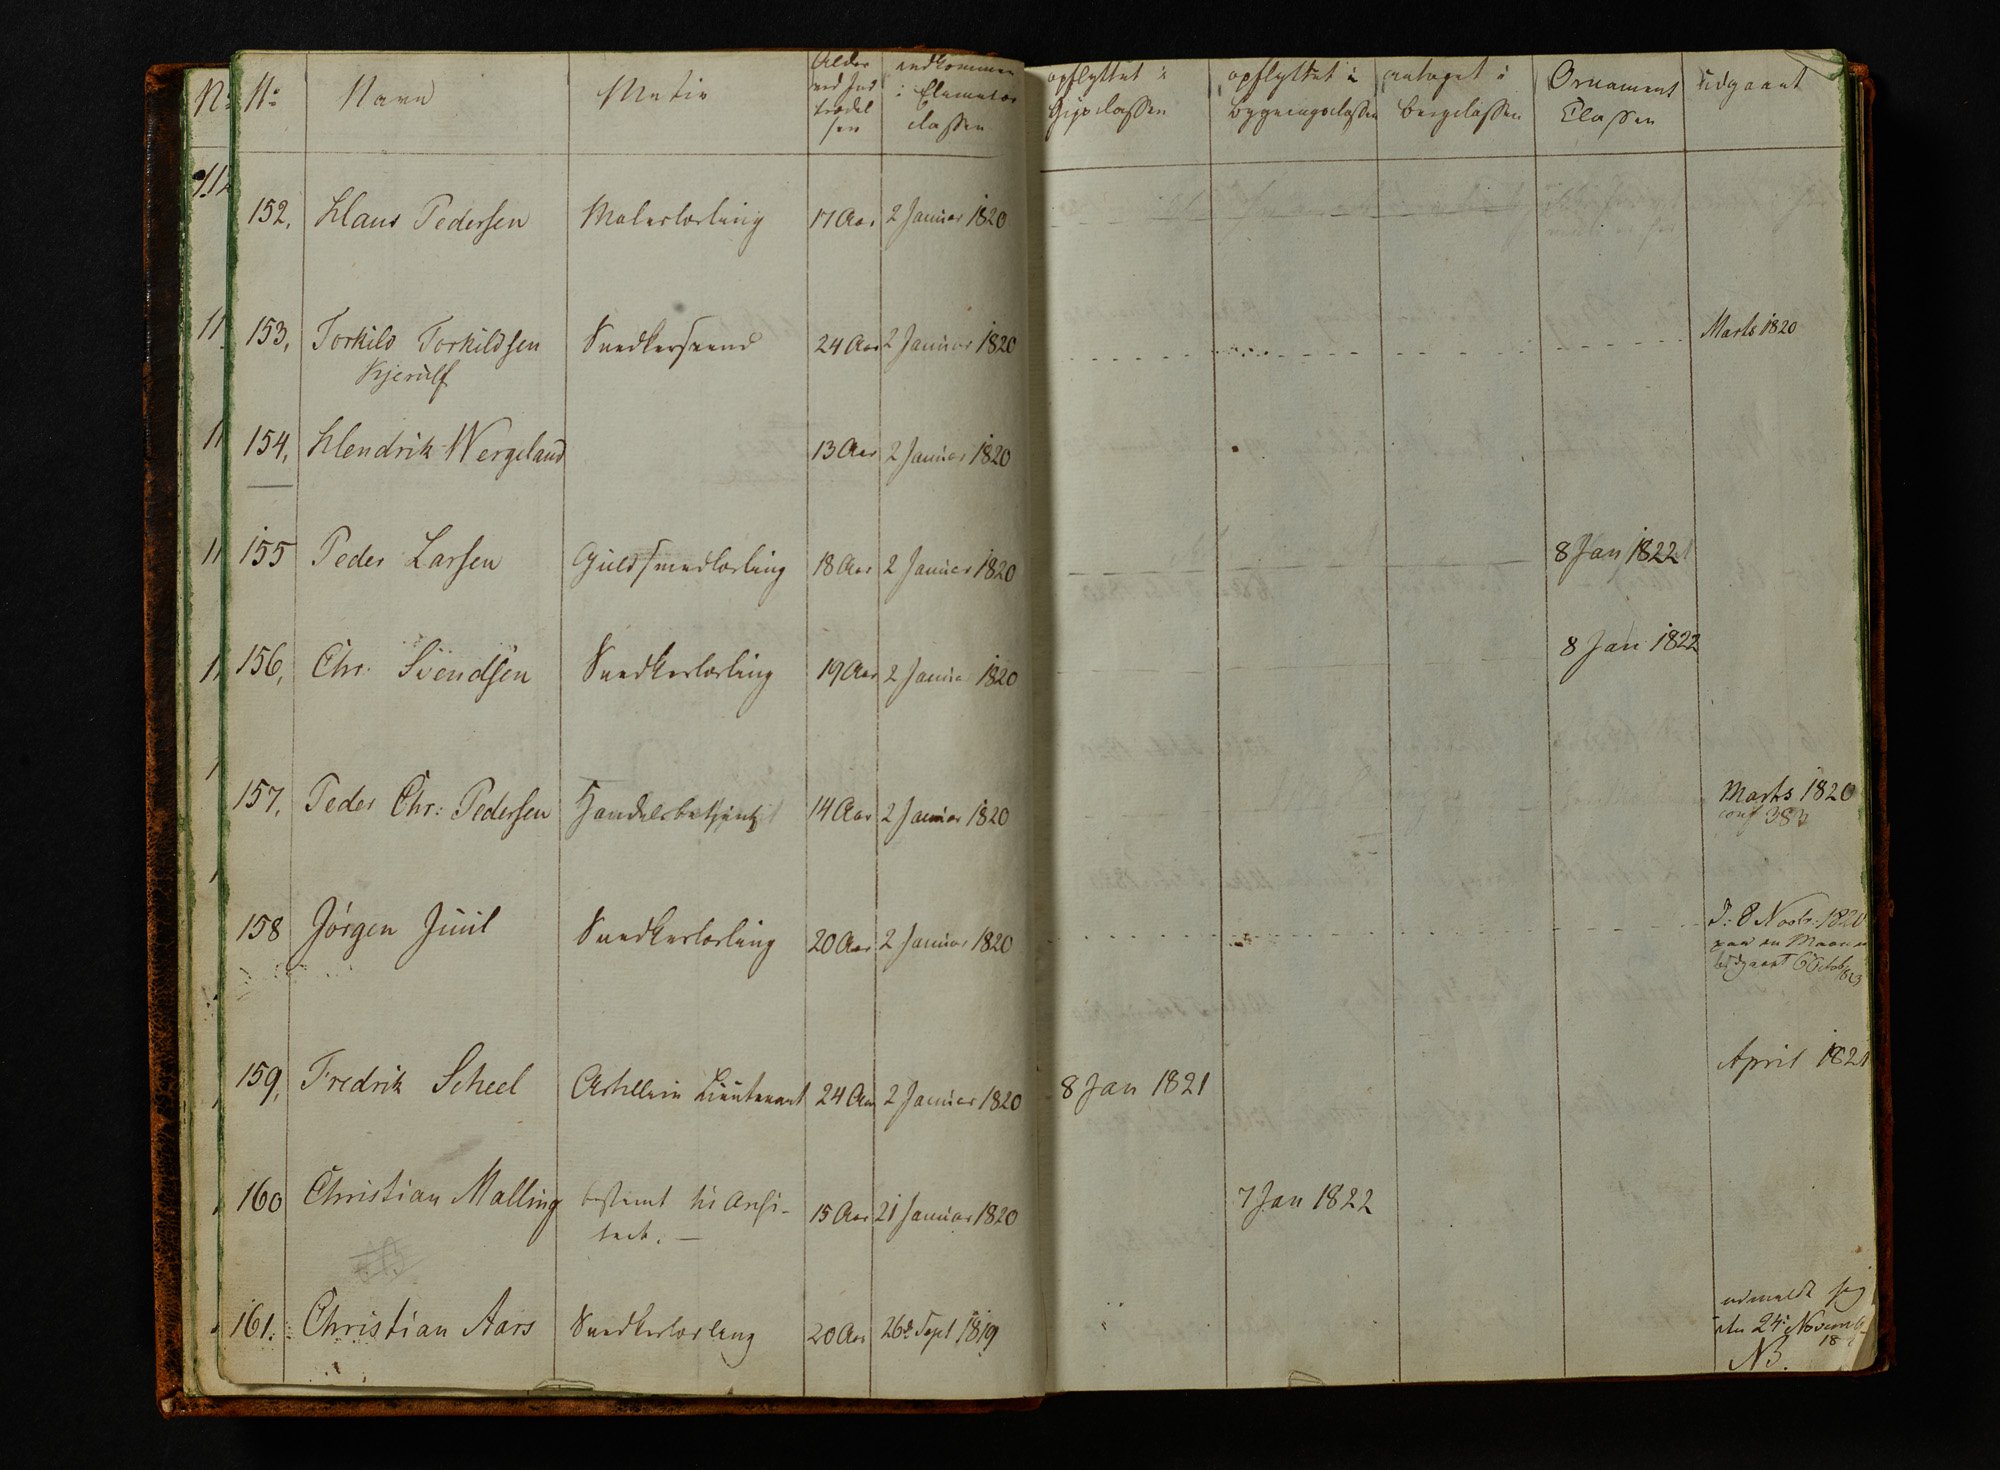 No Navn Metie Alder ved Ind trædel sen indkommen i Elementar classen opflyttet i Gipsclassen opflyttet i bygningsclassen antaget i bergclassen Ornament Classen udgaaet
152. Hans Pedersen Malerlærling 17 Aar 2 Januar 1820
153. Torkild Torkildsen Kjerulf Snedkersvend 24 Aar 2 Januar 1820 Marts 1820
154. Hendrik Wergeland 13 Aar 2 Januar 1820
155 Peder Larsen Guldsmedlærling 18 Aar 2 Januar 1820 8 Jan 1822
156, Chr. Svendsen Snedkerlærling 19 Aar 2 Januar 1820 8 Jan 1822
157. Peder Chr: Pedersen Handelsbetjent 14 Aar 2 Januar 1820 Marts 1820
conf 383
158 Jørgen Juul Snedkerlærling 20 Aar 2 Januar 1820 8 Novbr: 1820
paa en Maaned
udgaaet Octob
159, Fredrik Scheel Artilleri Lieutenant 24 Aar 2 Januar 1820 8 Jan 1821 April 1821
160 Christian Malling bestemt til Archi-
tect. 15 Aar 21 Januar 1820 7 Jan 1822
161. Christian Aars Snedkerlærling 20 Aar 26de Sept 1819 udmeldt sig
den 24 Novemb
18
NB.